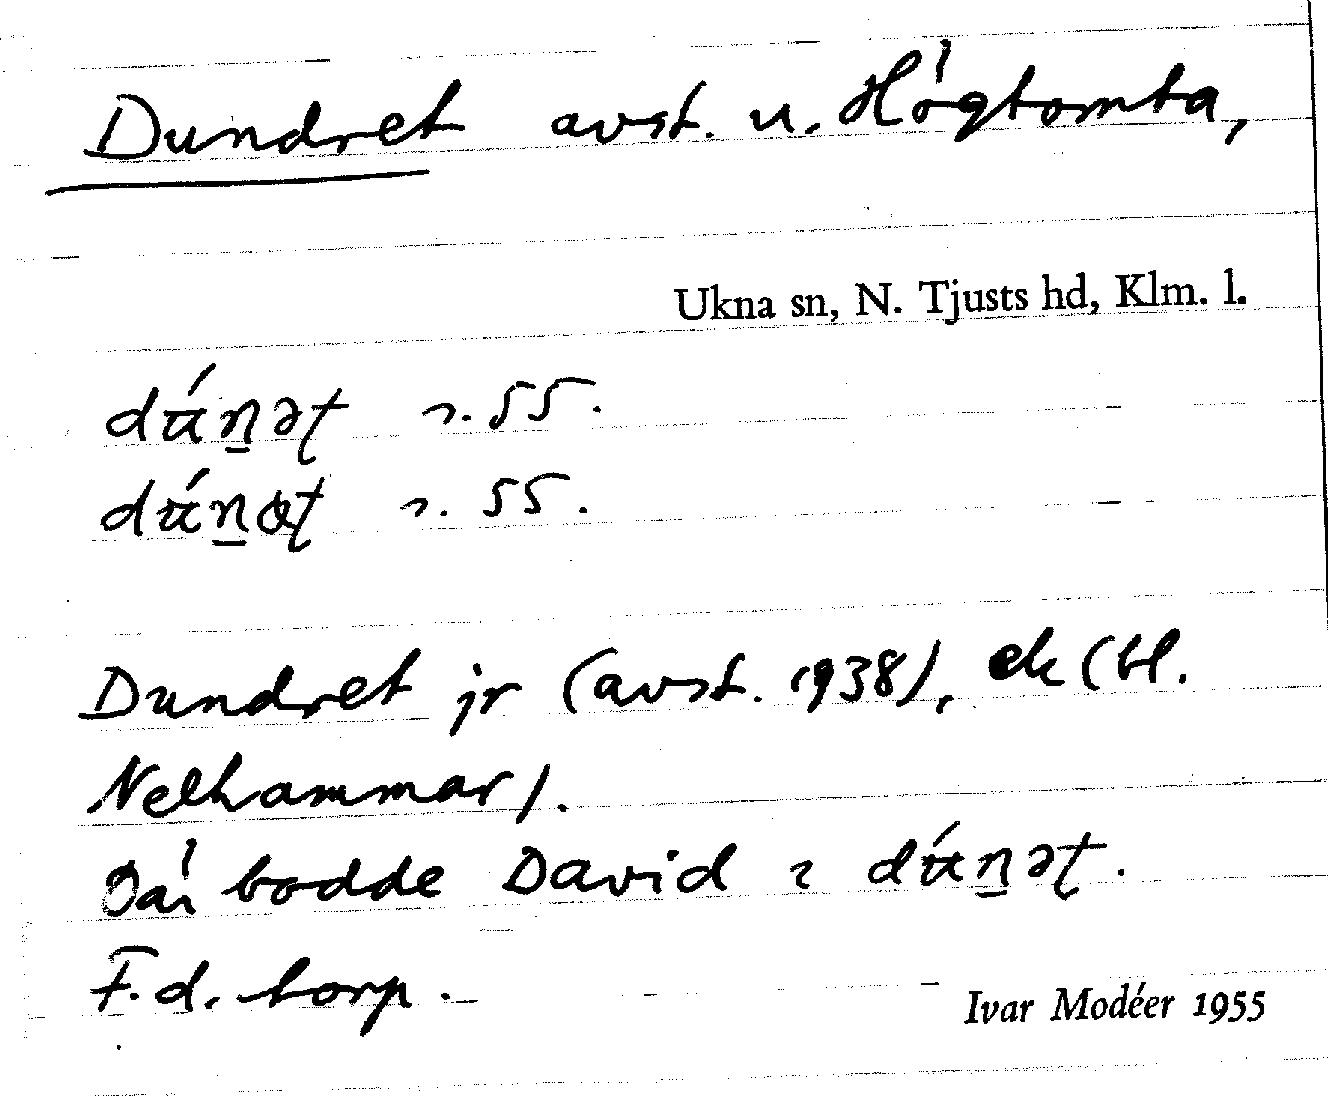 Dundret avst. u. Högtomta,
Ukna sn, N. Tjusts hd, Klm. l.
55.
55.
Dundret jr (avst. 1938), ek (bl.
Nelhammar).
Där bodde David
F.d. torp.
Ivar Modéer 1955